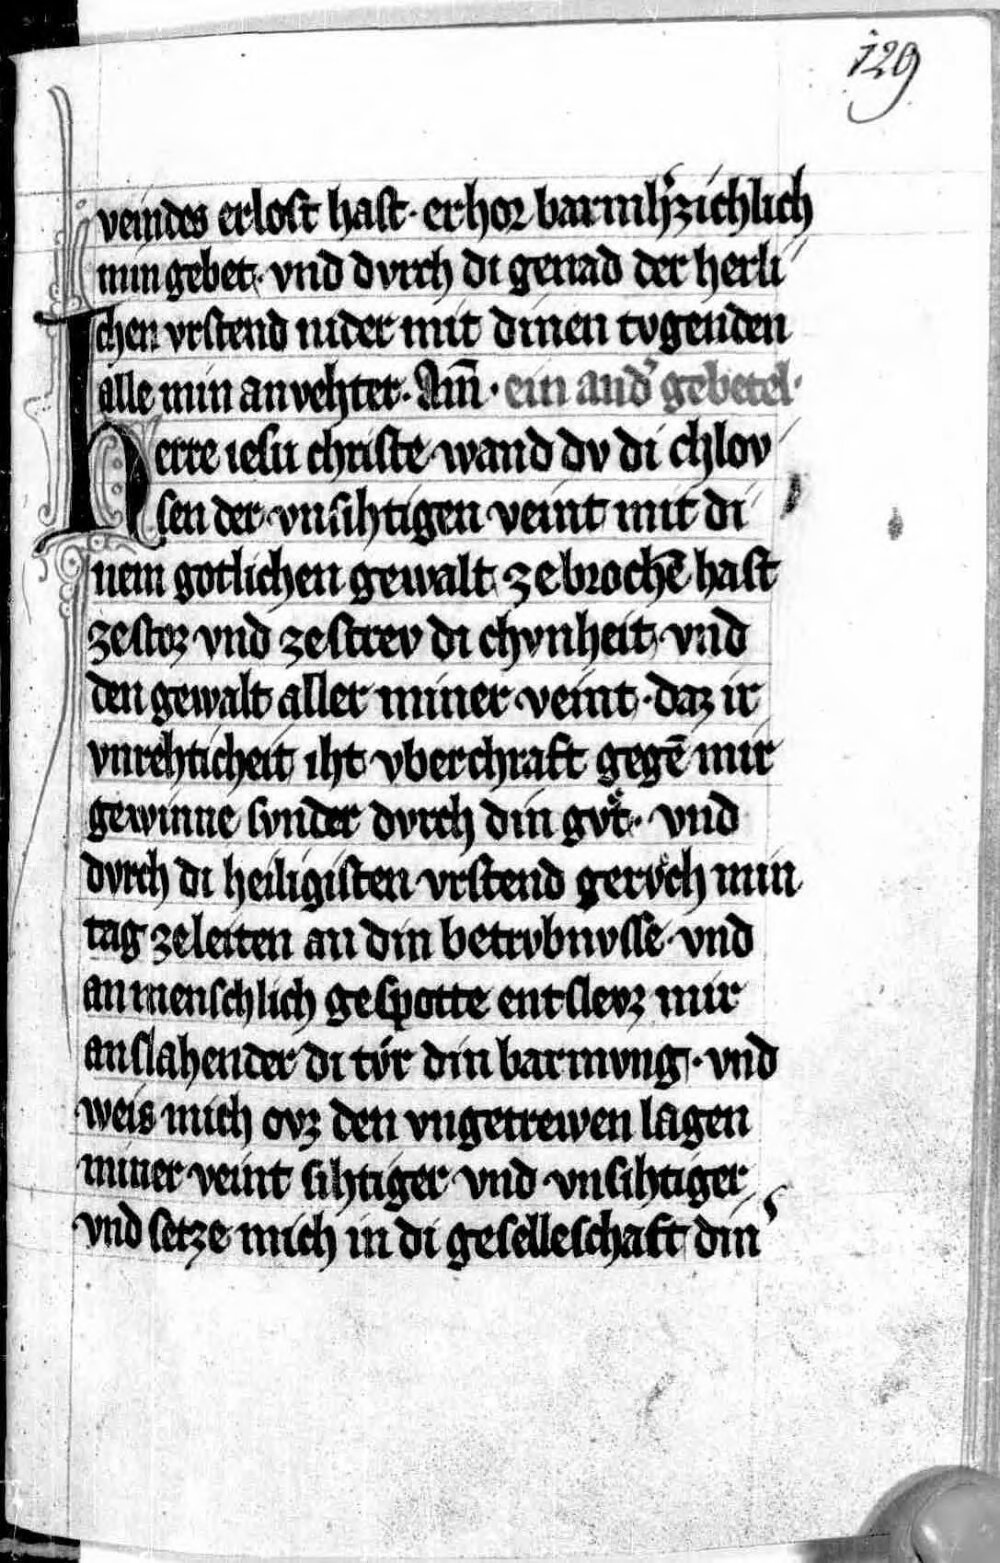 129
veindes erlost hast· erhor barmhʼzichlich
min gebet· vnd dvrch di genad der herli
chen vrstend nider mit dinen tvgenden
alle min anvehter· Am̄· ein andʼ gebetel·
Herre iesu christe wand dv di chlov
sen der vnsihtigen veint mit di
nem gotlichen gewalt zebrochē hast
zestor vnd zestrev di chvnheit vnd
den gewalt aller miner veint· daz ir
vnrehticheit iht vberchraft gegē mir
gewinne svnder dvrch din gvͤt· vnd
dvrch di heiligisten vrstend gervͦch min
tag zeleiten an din betrvbnvsse vnd
an menschlich gespotte entslevz mir
anslahender di tv́r din barmvng· vnd
weis mich ovz den vngetrewen lagen
miner veint sihtiger vnd vnsihtiger
vnd setze mich in di geselleschaft dinʼ